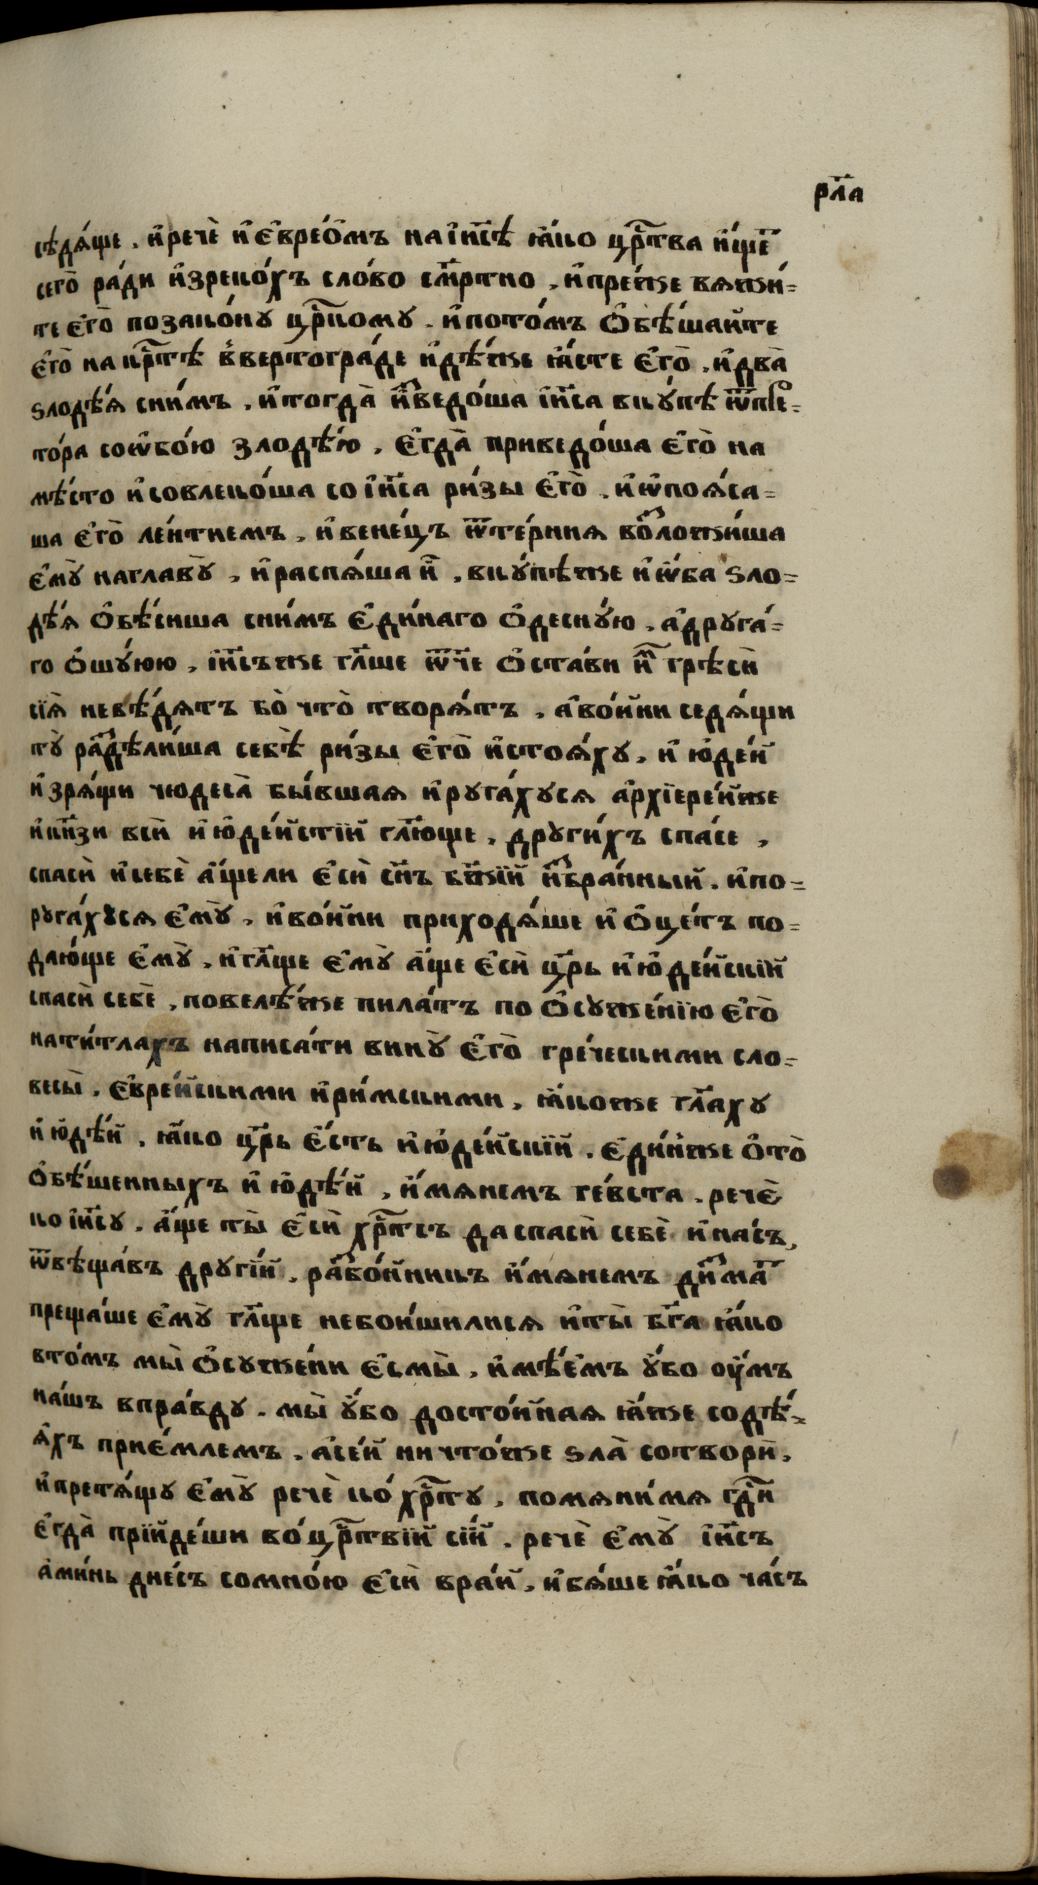 рл҃а
сѣдѧ́ще . и҆речѐ и҆є҆врео́мъ на і҆и҃сѣ ꙗ҆́ко цр҃тва и҆́ще
сего̀ ра́ди и҆зреко́хъ сло́во см҃ртно , и҆пре́жже вѧжи́=
те є҆го̀ позако́ну цр҃кому . и҆пото́мъ ѻ҆бѣ́шаите
є҆го̀ на кр҃тѣ в̾вертогра́де и҆дѣ́же ꙗ҆́сте є҆го̀ . и҆два̀
ѕлодѣ́ѧ сни́мъ . и҆тогда̀ и҆зведо́ша і҆и҃са вку́пѣ ѿпре=
то́ра соѡ҆бо́ю злодѣ́ю . є҆гда̀ приведо́ша є҆го̀ на
мѣ́сто и҆совлеко́ша со і҆и҃са ри́зы є҆го̀ . и҆ѡ҆поѧ́са=
ша є҆го̀ ле́нтиемъ . и҆вене́цъ ѿте́рниѧ возложи́ша
є҆мꙋ̀ наглавꙋ̀ , и҆распѧ́ша и҆̀ . вку́пѣже и҆ѡ҆́ба ѕло=
дѣ́ѧ ѻ҆бѣ́сиша сни́мъ є҆ди́наго ѻ҆десну́ю . а҆друга́=
го ѻ҆шу́юю , і҆и҃съже гл҃ше ѿ҃че ѻ҆ста́ви и҆м грѣси̑
сїѧ̀ невѣ́дѧтъ бо̀ что̀ творѧ́тъ . а҆во́ини седѧ́щи
тꙋ̀ разⷣѣли́ша себѣ̀ ри́зы є҆го̀ и҆стоѧ́ху , и҆ юде́й
и҆зрѧ́щи чюдеса̀ бы́вшаѧ и҆руга́хусѧ а҆рхїере́йже
и҆кн҃зи вси̑ и҆ю҆де́йстїй гл҃юще , други́хъ спа́се ,
спаси̑ и҆себѐ а҆́щели є҆си̑ сн҃ъ бж҃їй и҆збра́нный . и҆по=
руга́хꙋсѧ є҆мꙋ̀ , и҆во́ини приходѧ́ше и҆ ѻ҆це́тъ по=
даю́ще є҆мꙋ̀ , и҆гл҃ще є҆мꙋ̀ а҆́ще є҆си̑ цр҃ь и҆ю҆де́йскїй
спаси̑ себѐ , повелѣ́же пила́тъ по ѻ҆суже́нїю є҆го̀
нати́тлахъ написа́ти винꙋ̀ є҆го̀ гре́ческими сло=
весы̀ . є҆вре́йскими и҆ри́мскими , ꙗ҆́коже гл҃аху
и҆ юдѣ́й . ꙗ҆́ко цр҃ь є҆́сть и҆ю҆де́йскїй . є҆ди́нже ѻ҆то̀
ѻ҆бѣ́шенныхъ и҆ юдѣ́й , и҆́мѧнемъ ге́вста . речѐ
ко і҆и҃су . а҆́ще ты̀ є҆си̑ хр҃тсъ да спаси̑ себѐ и҆на́съ ,
ѿвѣща́въ други́й , разбо́йникъ и҆́мѧнемъ дизма
преща́ше є҆мꙋ̀ гл҃ще небои́шилисѧ и҆ты̀ бг҃а ꙗ҆́ко
вто́мъ мы̀ ѻ҆сужени є҆смы̀ , и҆мѣ́емъ ᲂу҆́бо ᲂу҆́мъ
на́шъ впра́вду . мы̀ ᲂу҆́бо досто́йнаѧ ꙗ҆́же содѣ́=
ѧхъ прие́млемъ . а҆се́й ничто́же ѕла̀ сотвори̑ ,
и҆претѧ́щу є҆мꙋ̀ речѐ ко́ хр҃ту , помѧни́мѧ гд҃и
є҆гда̀ прїиде́ши во цр҃твїй си́й . речѐ є҆мꙋ̀ і҆и҃съ
а҆ми́нь дне́съ сомно́ю є҆си̑ вра́й , и҆бѧ́ше ꙗ҆́ко ча́съ